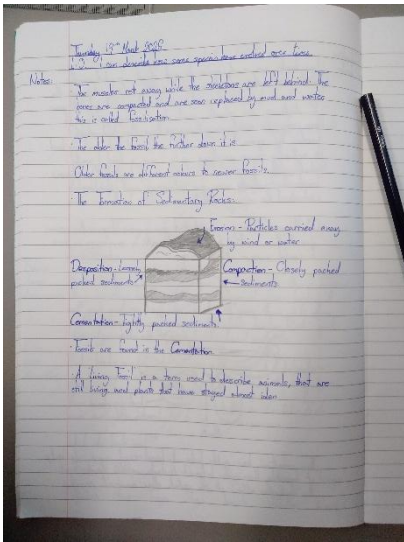 Thursday 19th March 2026
L.I: I can describe how some species have evolved over time.
Notes:
The muscles rot away while the skeletons are left behind. The
bones are compacted and are soon replaced by mud and water
this is called fossilisation.
· The older the fossil the further down it is.
Older fossils are different colours to newer fossils.
· The Formation of Sedimentary Rocks:
Erosion - Particles carried away
by wind or water
Deposition - Loosely
packed sediments
Compaction - Closely packed
sediments
Cementation - Tightly packed sediments
· Fossils are found in the Cementation
· A 'living fossil' is a term used to describe animals, that are
still living and plants that have stayed almost